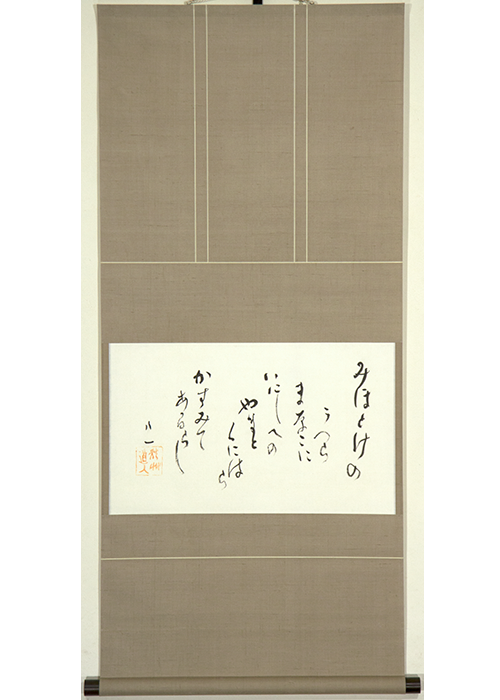 みほとけの
うつら
まなこに
いにしへの
やまと
くにはら
かすみて
あるらし
八一
秋艸
道人